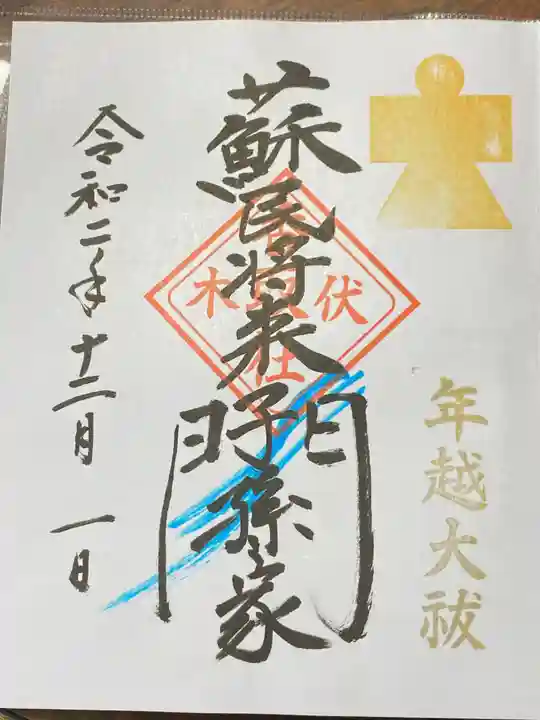 年越大祓
蘇民将来子孫之家門
伏木
社
令和二年十二月一日